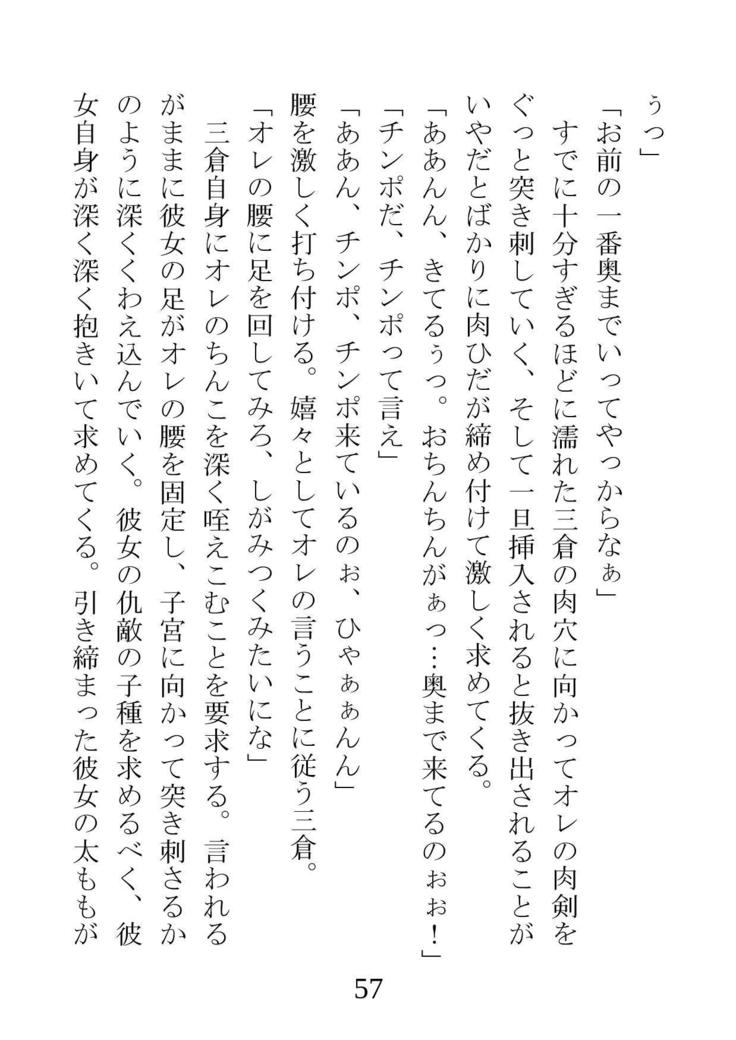 ぅっ」
「お前の一番奥までいってやっからなぁ」
　すでに十分すぎるほどに濡れた三倉の肉穴に向かってオレの肉剣を
ぐっと突き刺していく、そして一旦挿入されると抜き出されることが
いやだとばかりに肉ひだが締め付けて激しく求めてくる。
「ああんん、きてるぅっ。おちんちんがぁっ…奥まで来てるのぉぉ！」
「チンポだ、チンポって言え」
「ああん、チンポ、チンポ来ているのぉ、ひゃぁぁんん」
腰を激しく打ち付ける。嬉々としてオレの言うことに従う三倉。
「オレの腰に足を回してみろ、しがみつくみたいにな」
　三倉自身にオレのちんこを深く咥えこむことを要求する。言われる
がままに彼女の足がオレの腰を固定し、子宮に向かって突き刺さるか
のように深くくわえ込んでいく。彼女の仇敵の子種を求めるべく、彼
女自身が深く深く抱きいて求めてくる。引き締まった彼女の太ももが
57